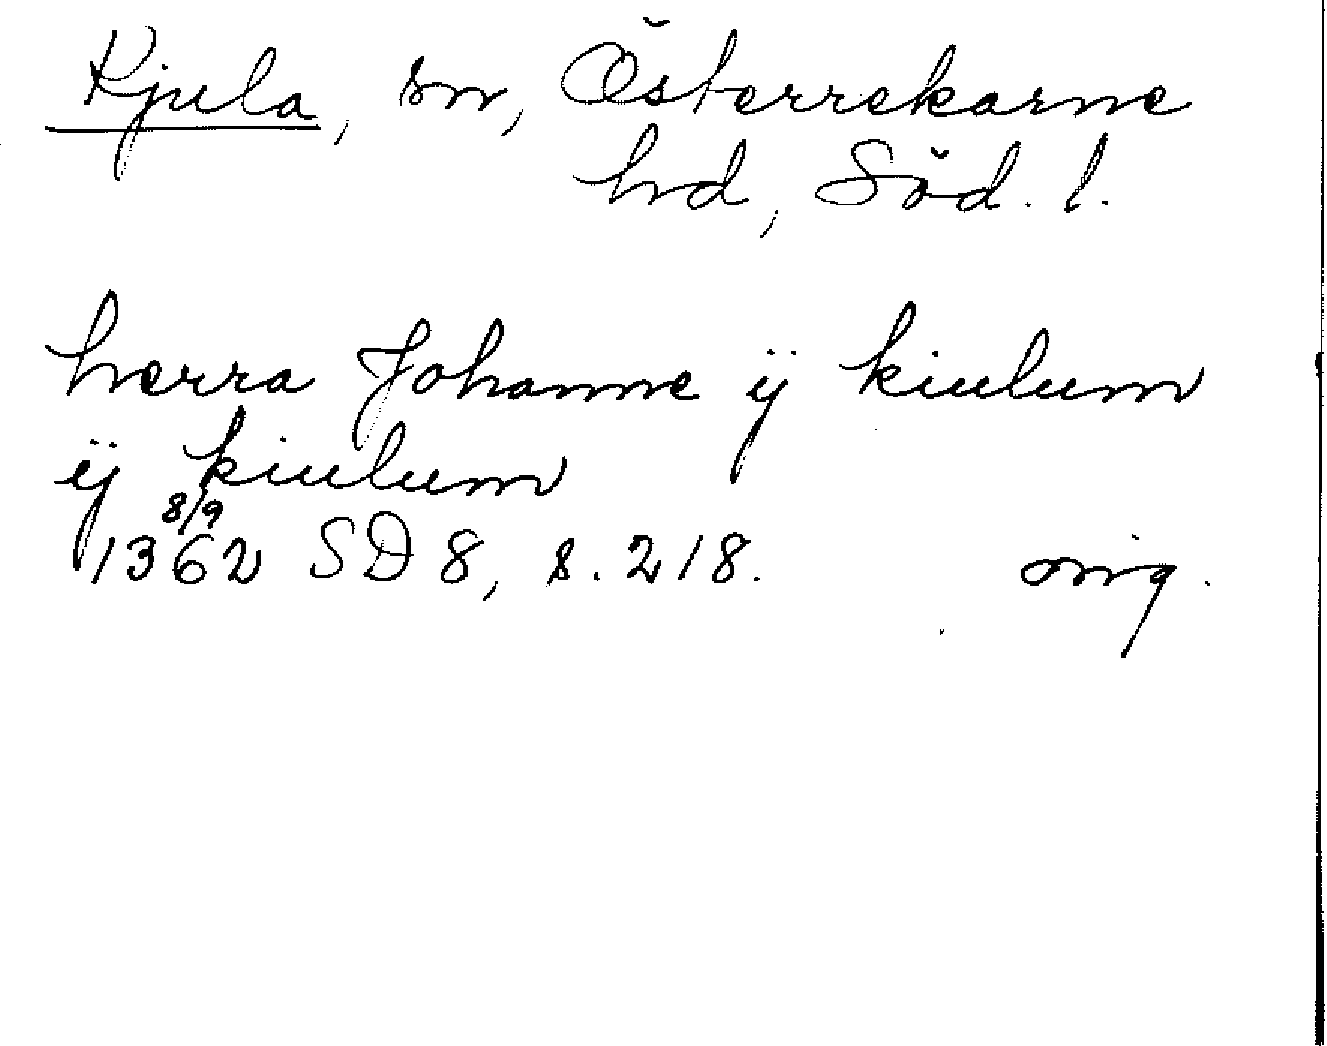 Kjula, sn, Österrekarne
hd, Söd. l.
hærra Johanne ÿ kiulum
ÿ kiulum
8/9
1362 SD 8, s. 218. orig.